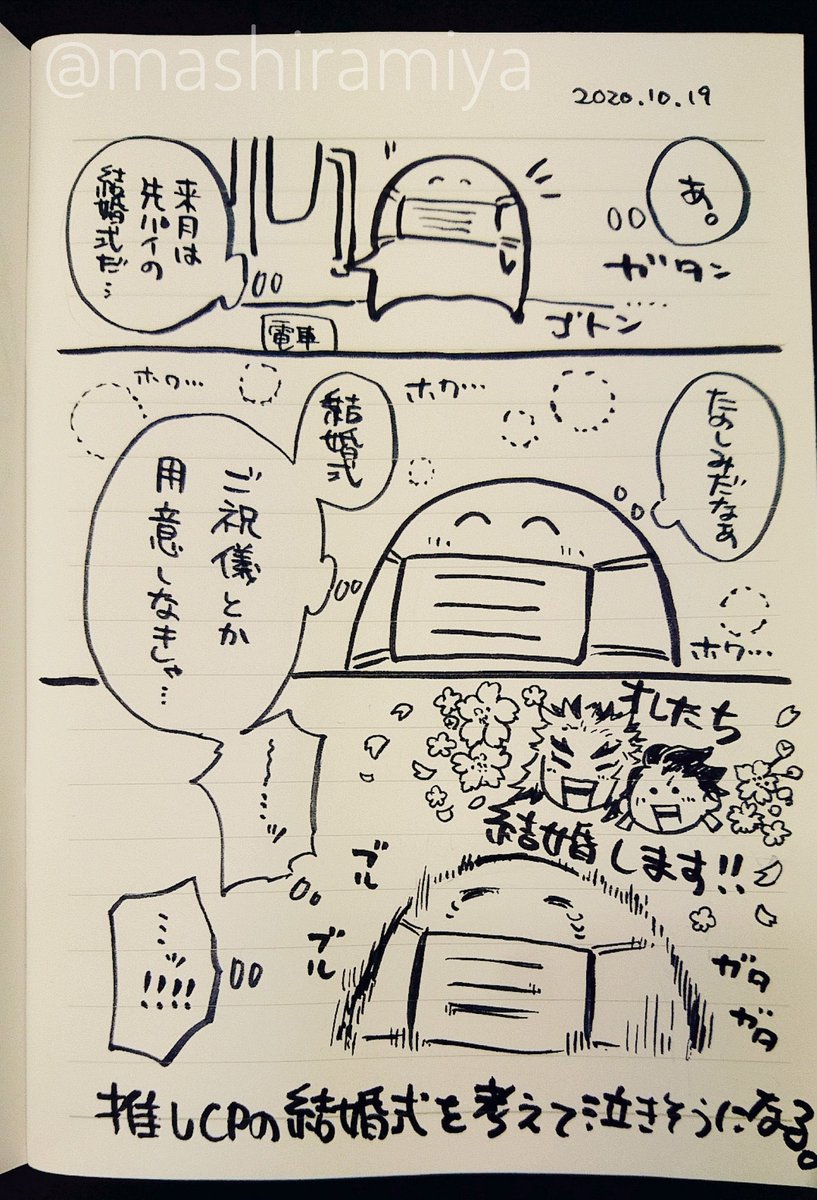 @mashiramiya
2020.10.19
あ。
ガタン
ゴトン
来月は
先パイの
結婚式だ…
電車
たのしみだなぁ
ホワ…
ホワ…
ホワ…
結婚式
ご祝儀とか
用意しなきしゃ…
オレたち
結婚します!!
〜〜…ッ
ブル
ブル
ガタ
ガタ
…ッ
!!!!
推しCPの結婚式を考えて泣きそうになる。